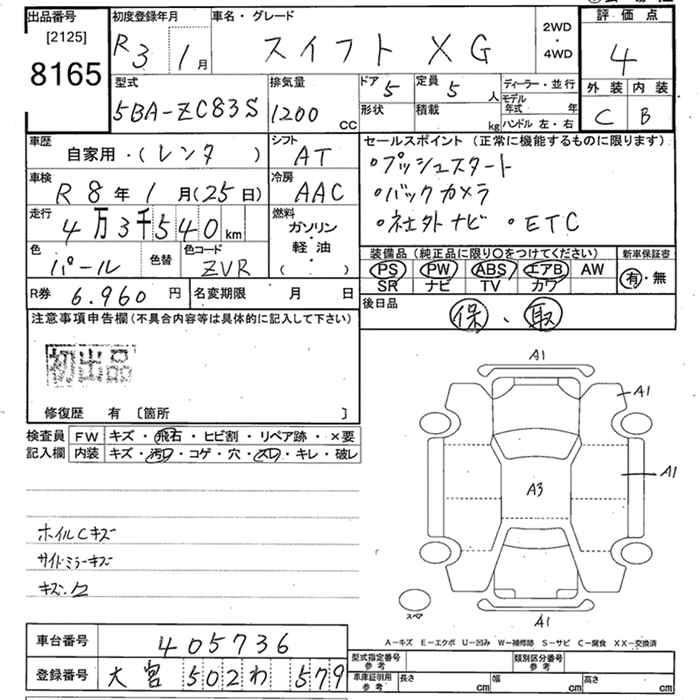 出品番号
[2125]
8165
初度登録年月
R3 1月
車名・グレード
スイフト XG
2WD
・
4WD
評価点
4
外装 内装
C B
型式
5BA-ZC83S
排気量
1200 cc
ドア 5
形状
定員 5 人
積載 kg
ディーラー・並行
モデル年式 年
ハンドル 左・右
車歴
自家用・(レンタ )
シフト
AT
セールスポイント(正常に機能するものに限ります)
・プッシュスタート
・バックカメラ
・社外ナビ ・ETC
車検
R 8年 1月(25日)
冷房
AAC
走行
4万3千540km
燃料
ガソリン
・
軽・油
( )
色
パール
色替
色コード
ZVR
装備品(純正品に限り○をつけてください)
PS PW ABS エアB AW
SR ナビ TV カワ
新車保証書
有・無
R券 6.960円
名変期限 月 日
後日品
保、取
注意事項申告欄(不具合内容等は具体的に記入して下さい)
初出品
修復歴 有 〔箇所 〕
検査員記入欄
FW キズ・飛石・ヒビ割・リペア跡・×要
内装 キズ・汚レ・コゲ・穴・スレ・キレ・破レ
ホイルCキズ
サイドミラーキズ
A1
A1
A1
A3
A1
スペア
A-キズ E-エクボ U-凹み W-補修跡 S-サビ C-腐食 XX-交換済
車台番号 405736
登録番号 大宮 502 わ 579
型式指定番号 参考
類別区分番号 参考
車庫証明用 参考
長さ cm 幅 cm 高さ cm